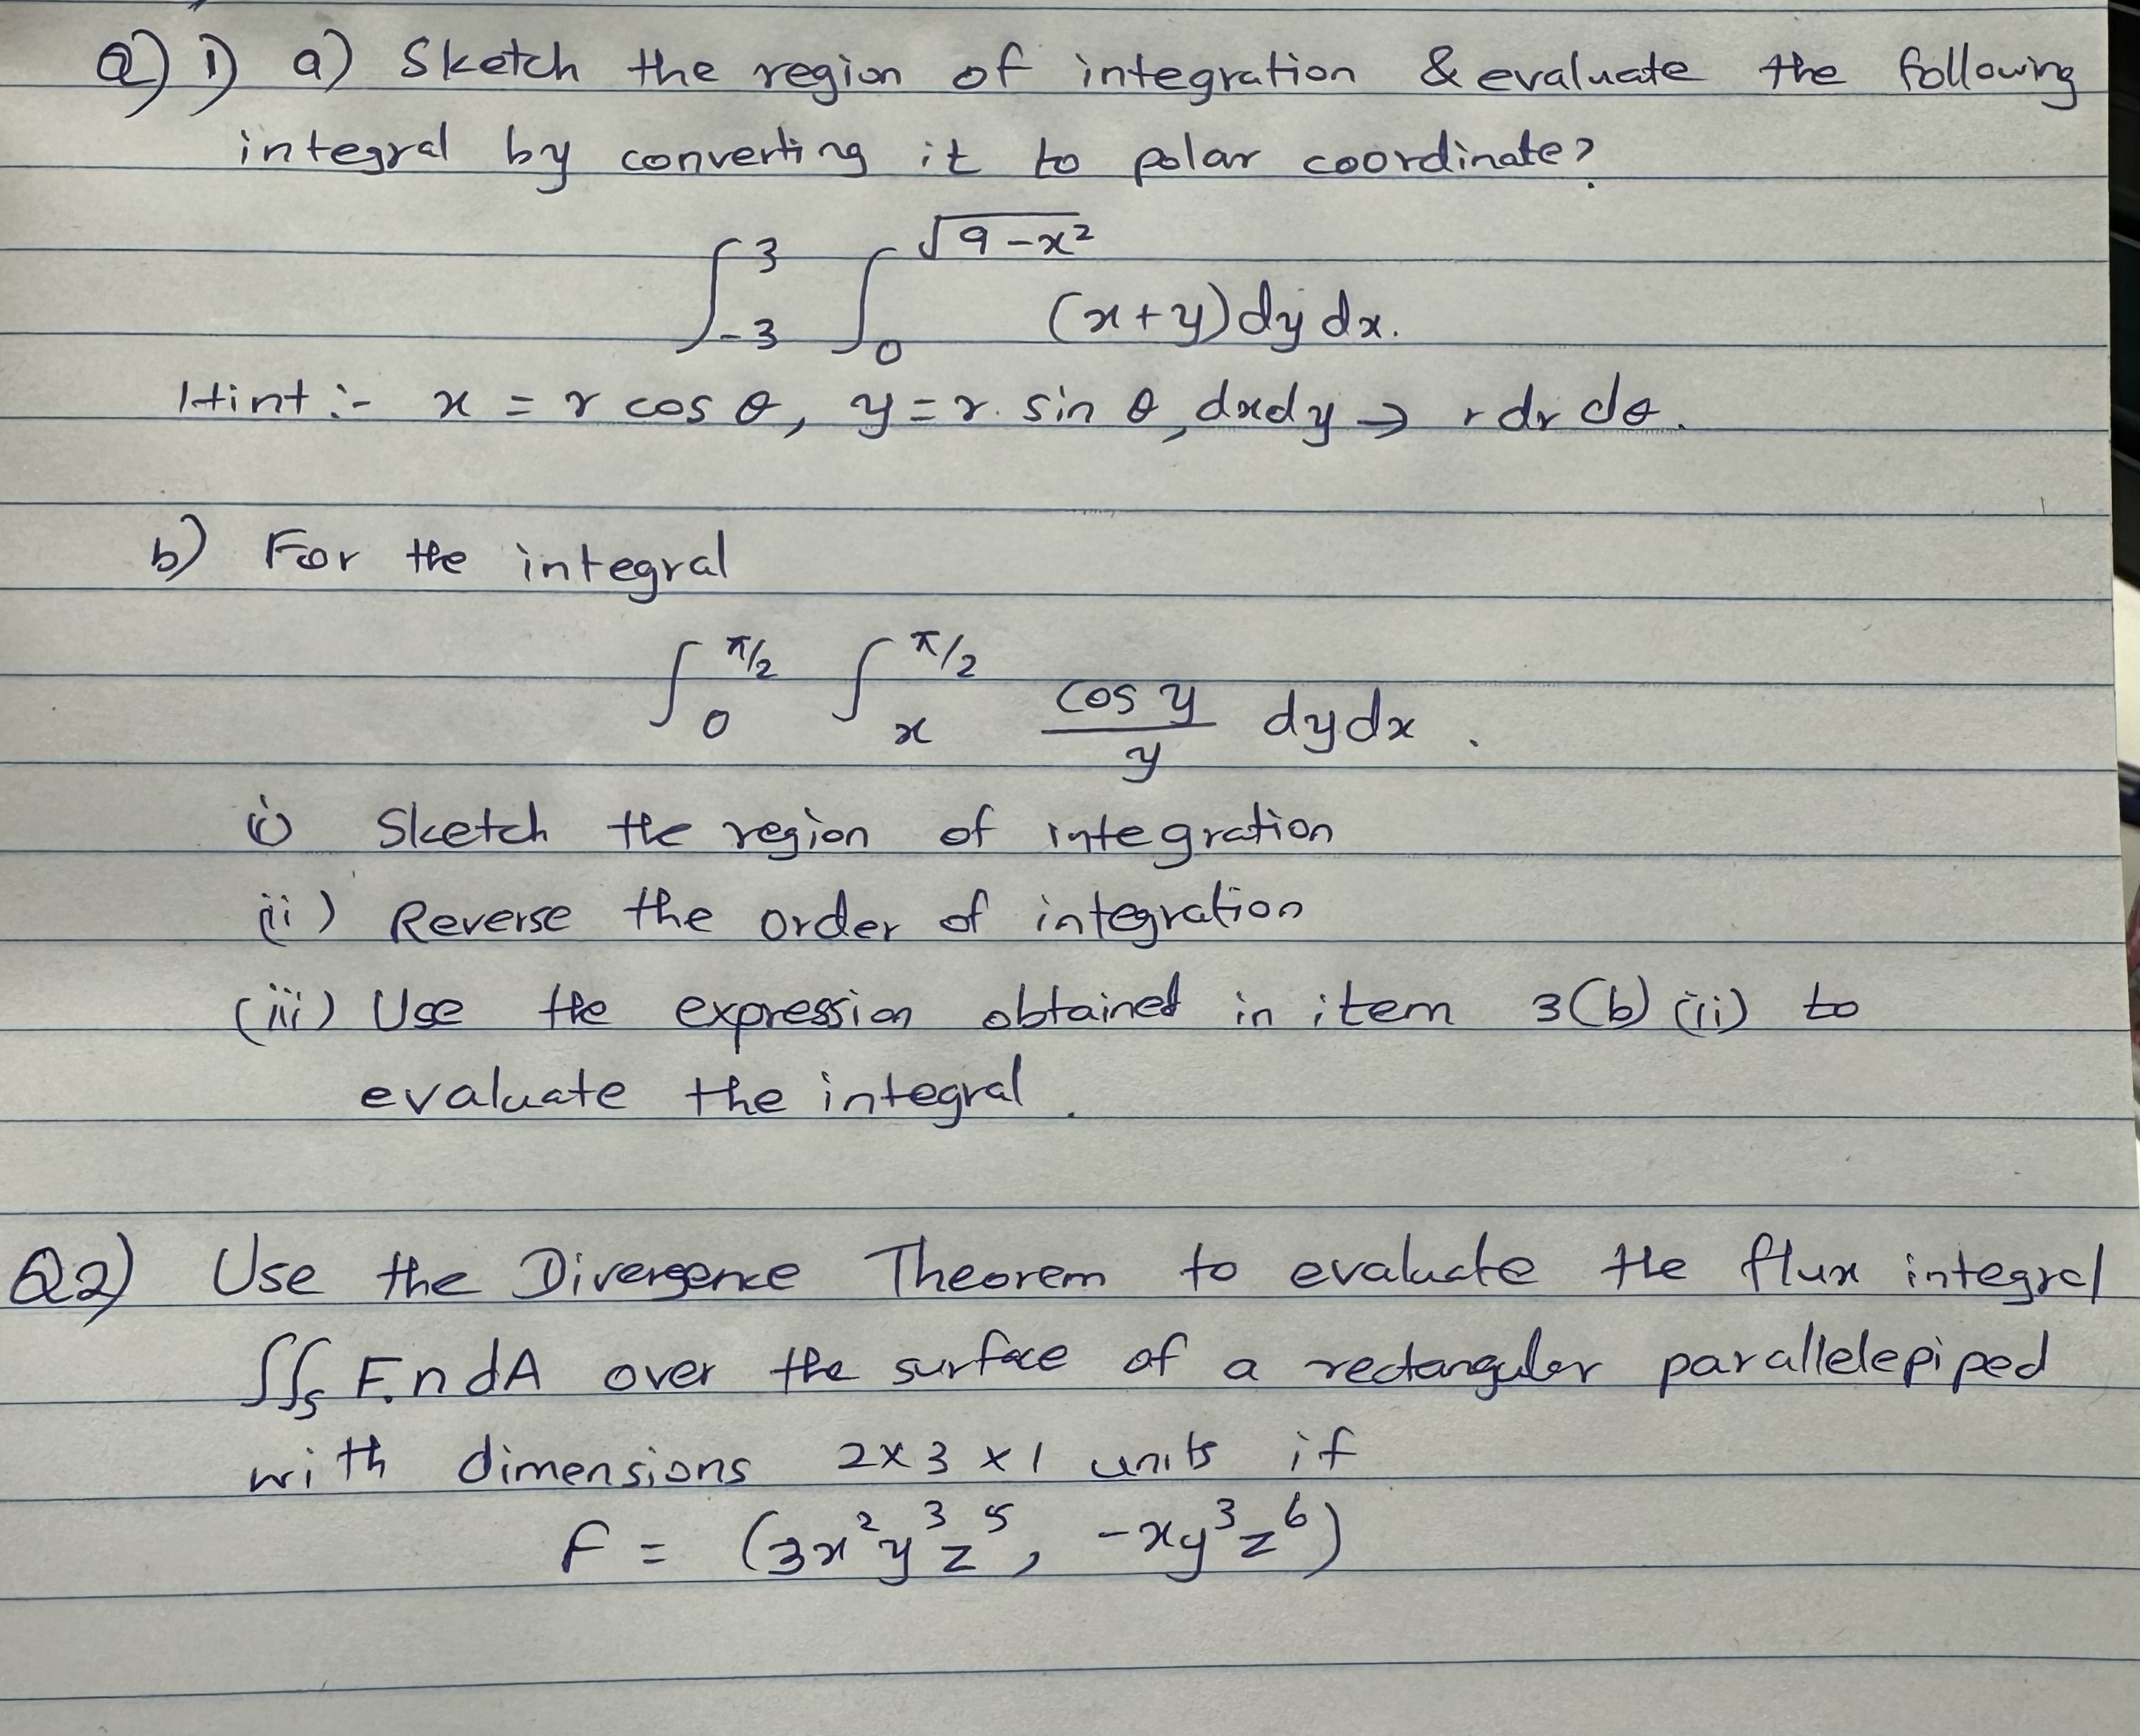 Q) 1) a) Sketch the region of integration & evaluate the following
integral by converting it to polar coordinate?
∫_{-3}^{3} ∫_{0}^{√(9-x²)} (x+y) dy dx.
Hint :- x = r cos θ, y = r. sin θ, dxdy → r dr dθ.
b) For the integral
∫_{0}^{π/2} ∫_{x}^{π/2} (cos y)/y dy dx.
(i) Sketch the region of integration
(ii) Reverse the order of integration
(iii) Use the expression obtained in item 3(b) (ii) to
evaluate the integral.
Q2) Use the Divergence Theorem to evaluate the flux integral
∬_S F.n dA over the surface of a rectangular parallelepiped
with dimensions 2 x 3 x 1 units if
F = (3x²y³z⁵, -xy³z⁶)